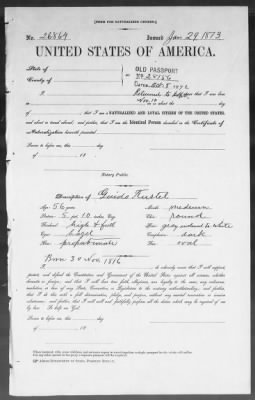 [FORM FOR NATURALIZED CITIZEN.]
No. 26869 Issued Jan 29 1873
UNITED STATES OF AMERICA.
State of
County of
OLD PASSPORT
No 24156
1872
I
that I was born
Nov. 10 on or about the day
of ; that I am a NATURALIZED AND LOYAL CITIZEN OF THE UNITED STATES,
and about to travel abroad; and further, that I am the Identical Person described in the Certificate of
Naturalization herewith presented.
Sworn to before me, this day
of 18
Notary Public
Description of Guido Kustel
Age: 56 years
Stature: 5 feet 10 inches, Eng.
Forehead: high & full
Eyes: hazel
Nose: proportionate
Mouth: medium
Chin: round
Hair: gray inclined to white
Complexion: dark
Face: oval
Born 30 Nov. 1816
I do solemnly swear that I will support,
protect, and defend the Constitution and Government of the United States against all enemies, whether
domestic or foreign; and that I will bear true faith, allegiance, and loyalty to the same, any ordinance,
resolution or law of any State, Convention, or Legislature to the contrary notwithstanding; and further,
that I do this with a full determination, pledge, and purpose, without any mental reservation or evasion
whatsoever; and further, that I will well and faithfully perform all the duties which may be required of me
by law: So help me God.
Sworn to before me, this day
of 18